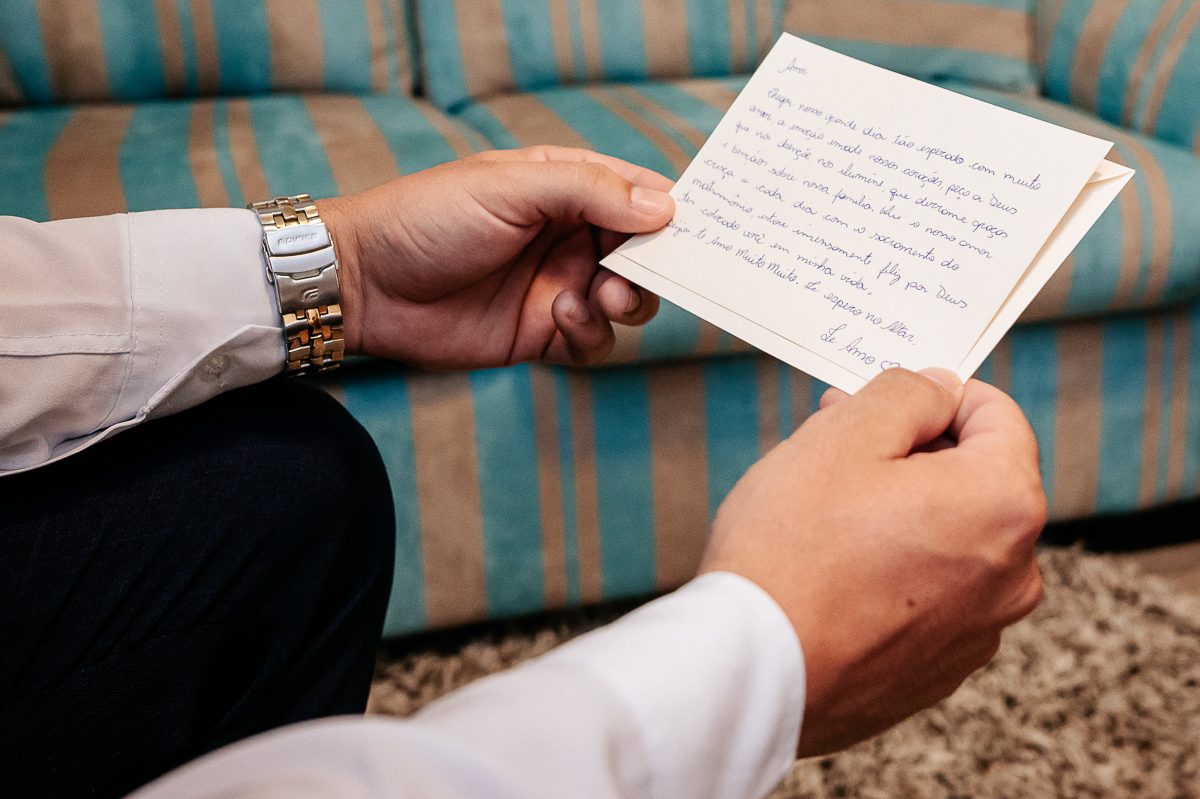 EDIFICE
Amor
Chegou nosso grande dia tão esperado com muito
amor, a emoção invade nossos corações, peço a Deus
que nos abençõe nos ilumine, que derrame graças
e bençãos sobre nossa família. Que o nosso amor
cresça a cada dia com o sacramento do
matrimônio, estou imensamente feliz por Deus
ter colocado você em minha vida.
te Amo Muito Muito. Te espero no Altar.
Te Amo ♡